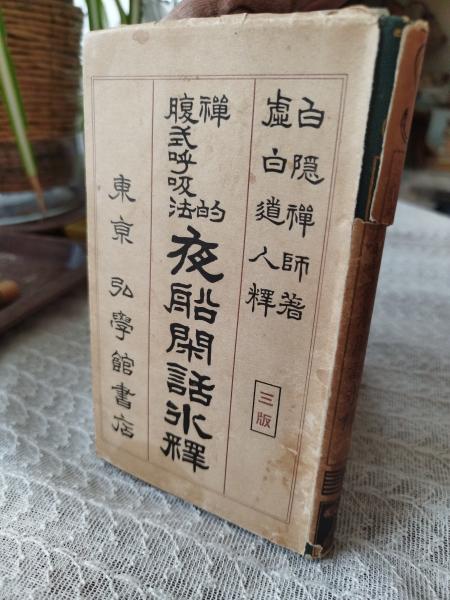 白隠禅師著
虚白道人釋
三版
禪的
腹式呼吸法
夜船閑話氷釋
東京 弘學館書店